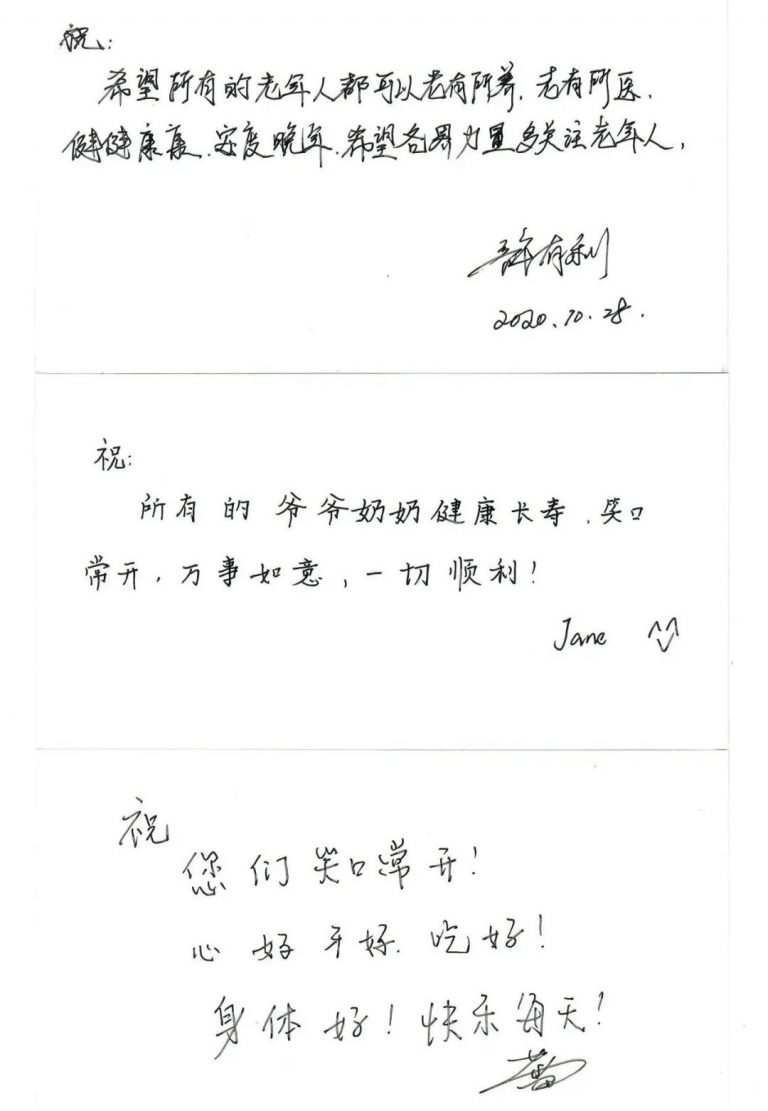 祝:
希望所有的老年人都可以老有所养、老有所医、
健健康康、安度晚年、希望各界力量多关注老年人,
许有利
2020.10.28.
祝:
所有的 爷爷奶奶健康长寿,笑口
常开,万事如意,一切顺利!
Jane
祝
您们笑口常开!
心好 牙好 吃好!
身体好!快乐每天!